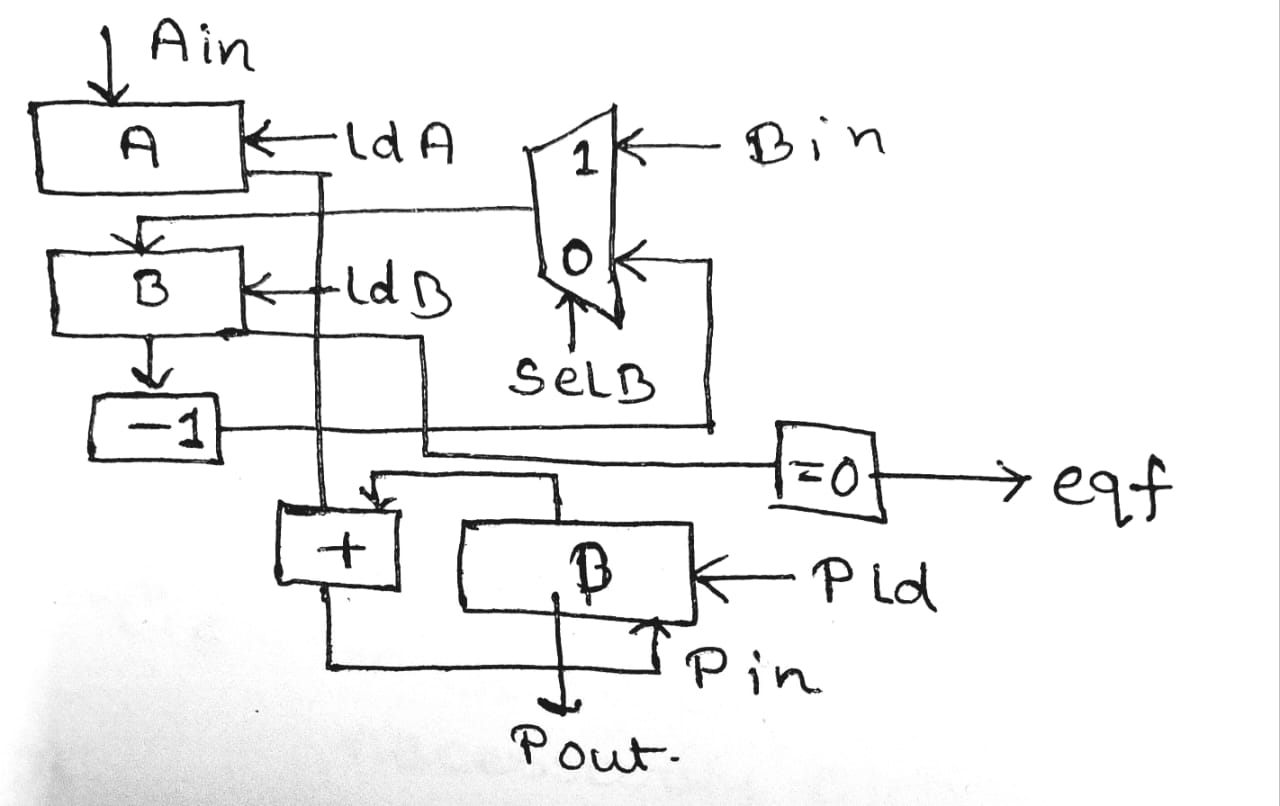 Ain
A
ldA
1
Bin
B
ldB
0
SelB
-1
=0
eqf
+
P
Pld
Pin
Pout.